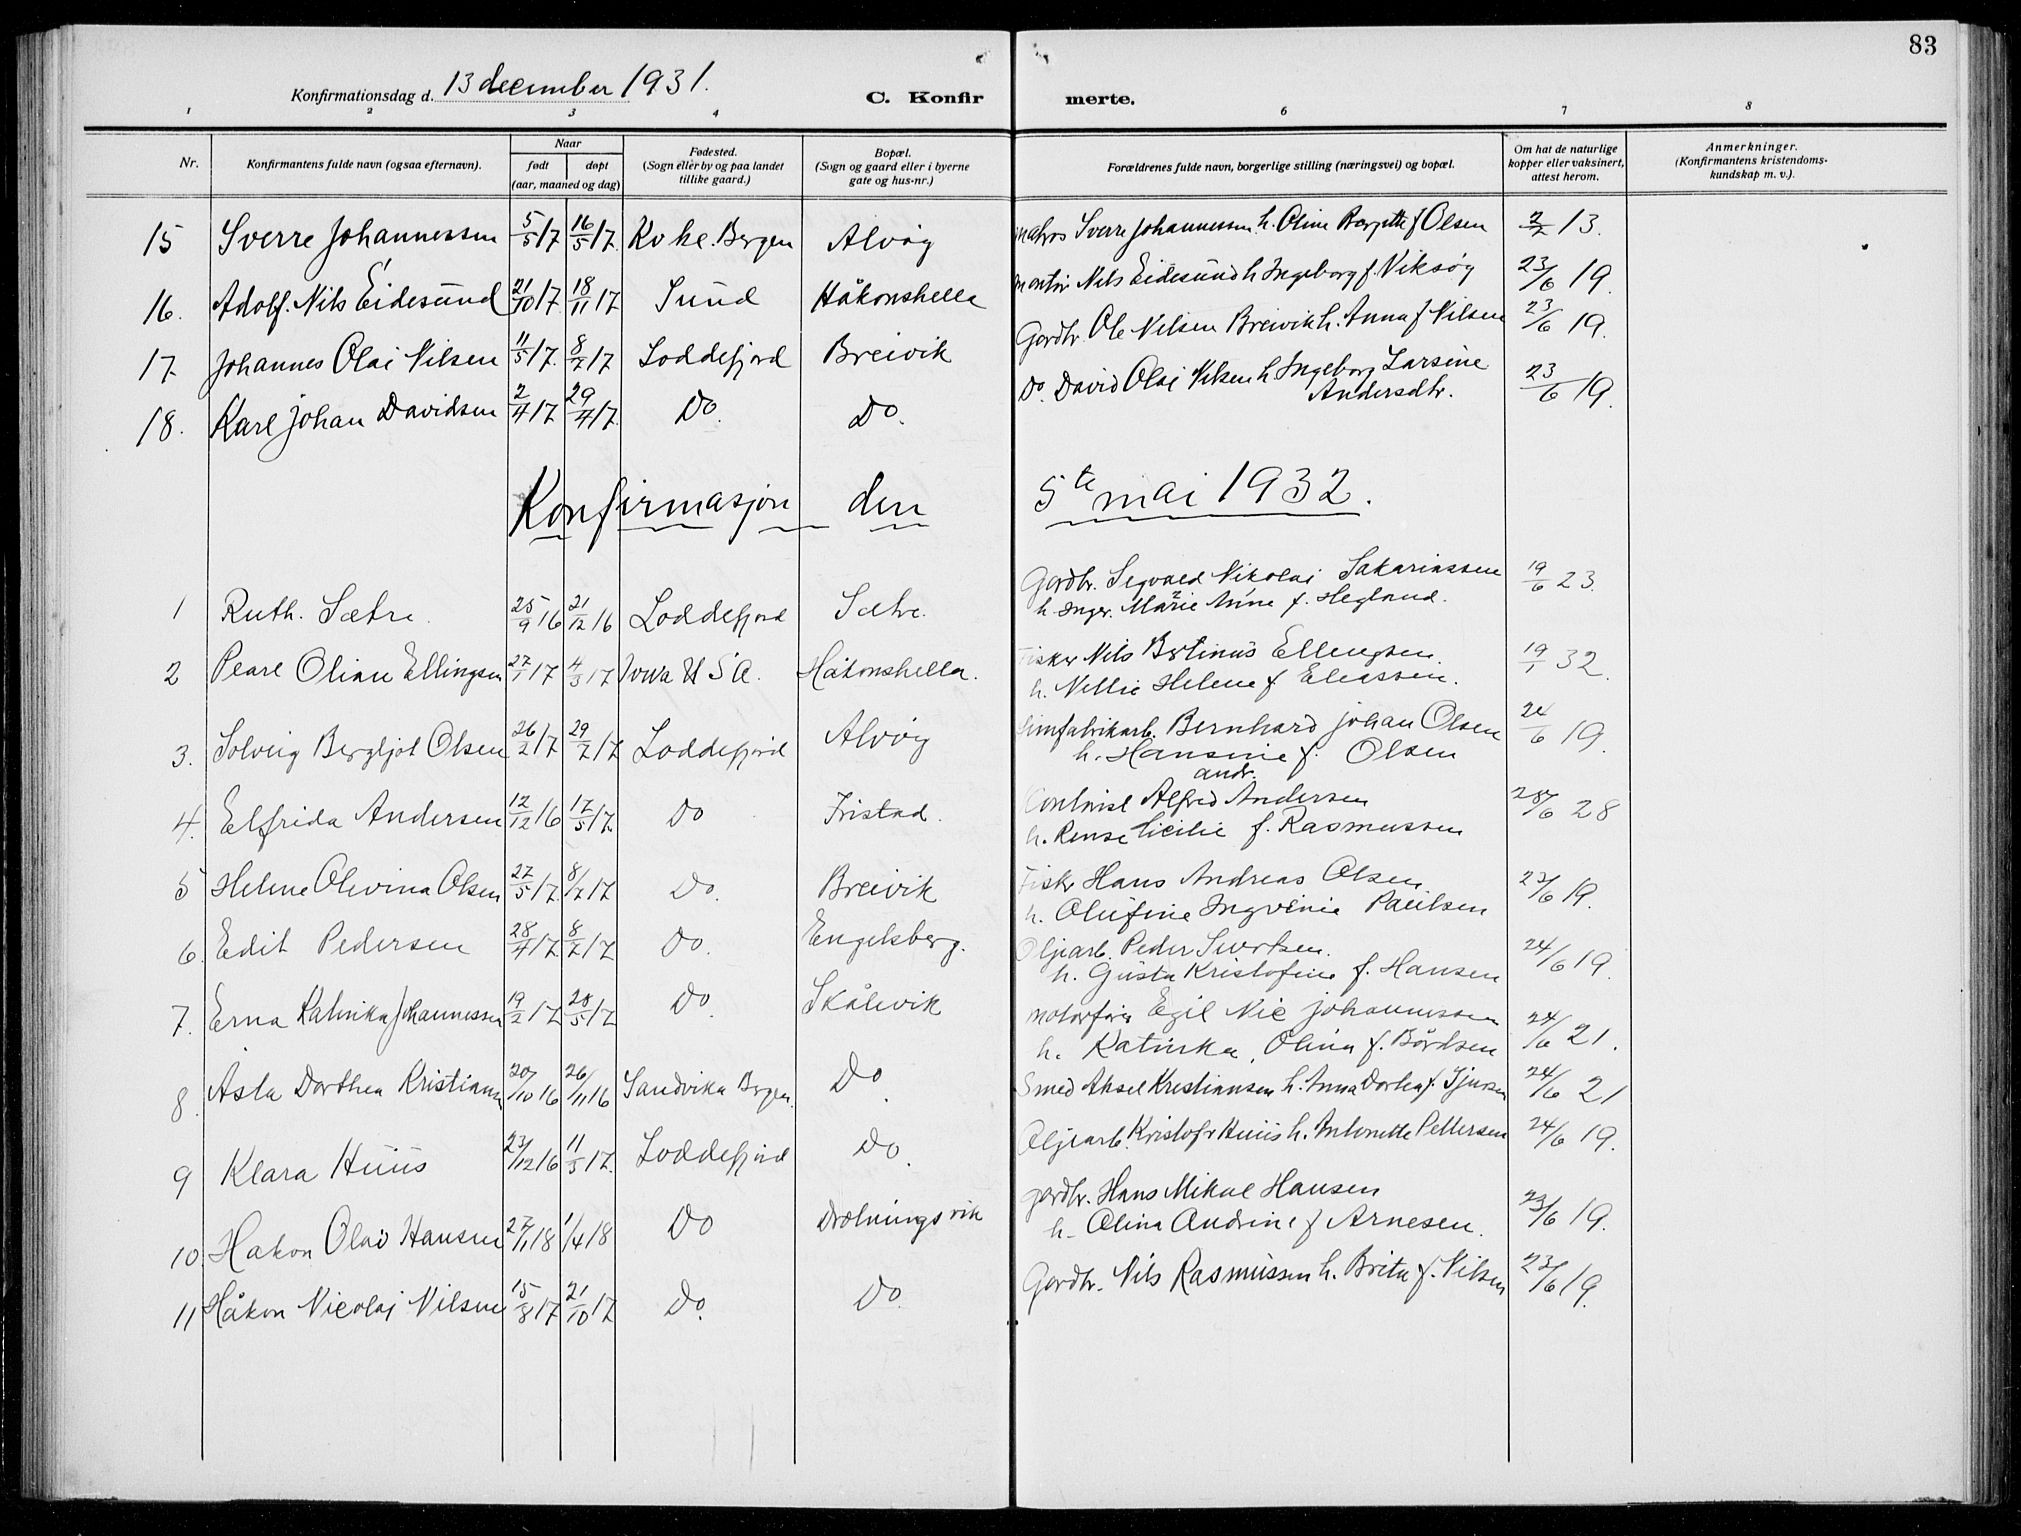 83
Konfirmationsdag d. 13 december 1931.
C. Konfirmerte.
1 2 3 4 6 7 8
Nr. Konfirmantens fulde navn (ogsaa efternavn). Naar født døpt (aar, maaned og dag) Fødested. (Sogn eller by og paa landet tillike gaard.) Bopæl. (Sogn og gaard eller i byerne gate og hus-nr.) Forældrenes fulde navn, borgerlige stilling (næringsvei) og bopæl. Om hat de naturlige kopper eller vaksinert, attest herom. Anmerkninger. (Konfirmantens kristendoms-kundskap m. v.).
15 Sverre Johannessen 5/5 17 16/5 17. Kv kl. Bergen Alvøy matros Sverre Johannessen h. Oline Bergitte f Olsen 2/2 13.
16. Adolf. Nils Eidesund 21/10 17 18/11 17 Sund Håkonshella montør Nils Eidesund h Ingeborg f. Viksøy 23/6 19.
17. Johannes Olai Nilsen 11/5 17. 8/7 17 Loddefjord Breivik Gardbr. Ole Nilsen Breivik h. Anna f Nilsen 23/6 19.
18. Karl Johan Davidsen 2/4 17 29/4 17. Do. Do. Do. David Olai Nilsen h Ingeborg Larsine
Andersdtr. 23/6 19.
Konfirmasjon den 5te mai 1932.
1 Ruth. Sætre. 25/9 16 21/12 16 Loddefjord Sætre. Gardbr. Sigvald Nikolai Sakariassen
h. Inger Marie Anne f. Hegland. 19/6 23.
2 Pearl Oliane Ellingsen 27/1 17 4/3 17 Iowa U S A. Håkonshella. Fisker Nils Bertinus Ellingsen.
h. Nellie Helene f. Eliassen. 19/1 32.
3. Solveig Bergljot Olsen 26/2 17 29/7 17 Loddefjord Alvøy Limfabrikarb. Bernhard Johan Olsen
h. Hansine f. Olsen 24/6 19.
4. Elfrida Andersen 12/12 16 17/5 17. Do Tristad. Alfred Andersen
andr.
h. Cicilie f. Rasmussen 28/6 28
5 Helene Olevina Olsen 27/5 17. 8/7 17 Do. Breivik Fisker Hans Andreas Olsen
h. Olufine Ingvinie Paulsen 23/6 19.
6. Edit Pedersen 28/4 17 8/7 17 Do. Engelsberg. Oljearb. Peder Sivertsen.
h. Gusta Kristofine f. Hansen 24/6 19.
7. Erna Katinka Johannessen 19/2 17 28/5 17 Do. Skålevik motorfører Egil Nic Johannessen
h. Katinka, Olina f. Bårdsen 24/6 21.
8. Asta Dorthea Kristiansen 20/10 16 26/11 16 Sandvika Bergen. Do. Smed Aksel Kristiansen h. Anna Dorthea f. Sjursen 24/6 21
9 Klara Huus 23/12 16 11/3 17. Loddefjord Do. Oljearb. Kristofer Huus h. Antonette Pettersen 24/6 19.
10. Håkon Olav Hansen 27/1 18 1/4 18 Do Drotningsvik gardbr. Hans Mikal Hansen
h. Olina Andrine f Arnesen. 23/6 19.
11 Håkon Nicolai Nilsen 15/8 17 21/10 17 Do. Do. Gardbr. Nils Rasmussen h. Brita f. Nilsen 23/6 19.